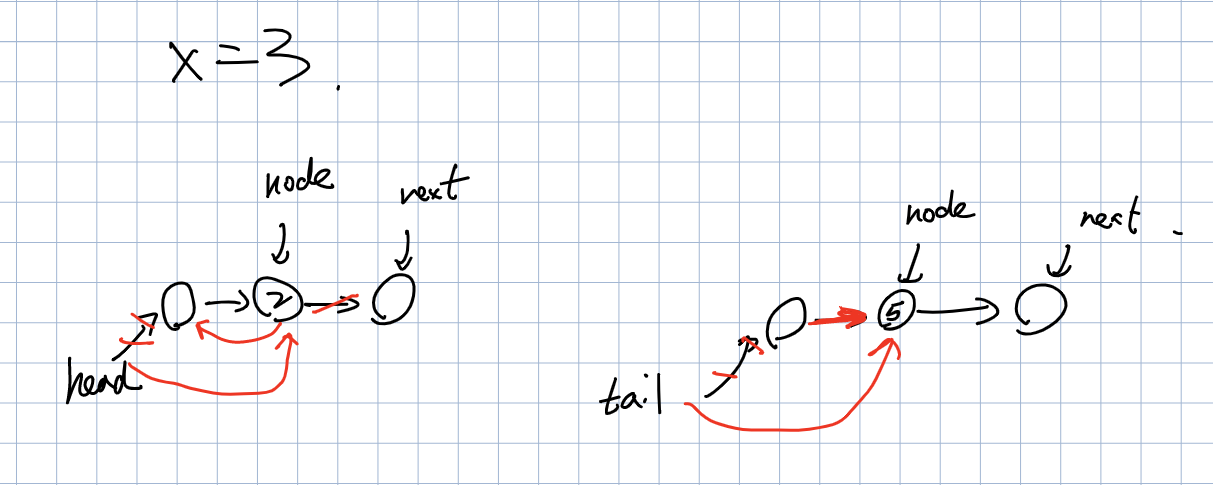 x=3.
node next
2
head
node next
5
tail